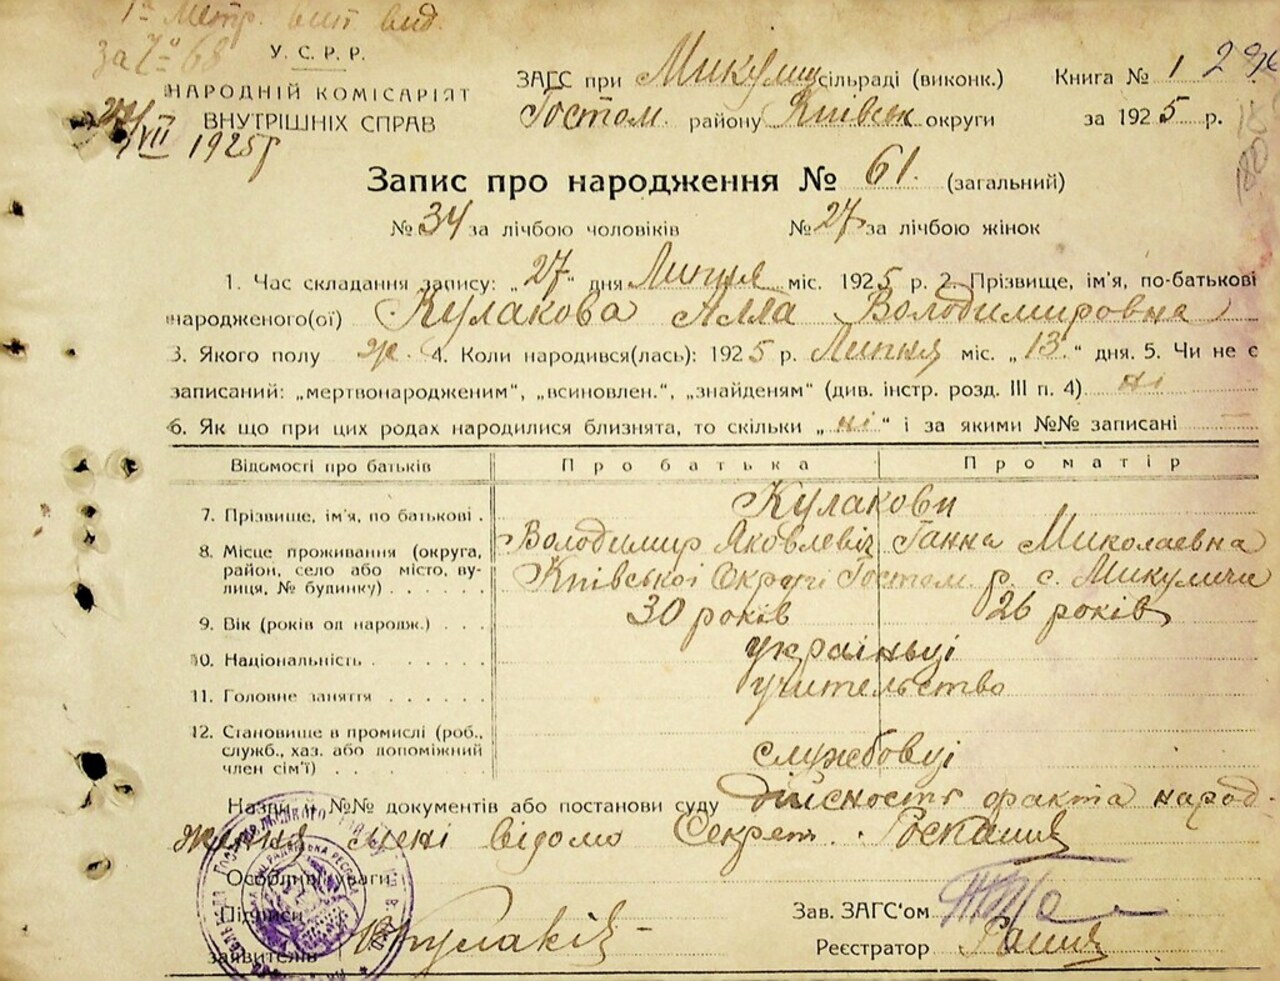 1ª Метр. вип вид.
за № 68
У. С. Р. Р.
НАРОДНІЙ КОМІСАРІЯТ
ВНУТРІШНІХ СПРАВ
27/VII 1925р
ЗАГС при Микулиц сільраді (виконк.) Книга № 1 296
Гостом. району Київськ округи за 1925 р.
Запис про народження № 61. (загальний)
№ 34 за лічбою чоловіків № 27 за лічбою жінок
1. Час складання запису: „27“ дня Липня міс. 1925 р. 2. Прізвище, ім'я, по-батькові
народженого(ої) Кулакова Алла Володимировна
3. Якого полу ж. 4. Коли народився(лась): 1925 р. Липня міс. „13“ дня. 5. Чи не є
записаний: „мертвонародженим“, „всиновлен.“, „знайденям“ (див. інстр. розд. III п. 4) ні
6. Як що при цих родах народилися близнята, то скільки „ні“ і за якими №№ записані —
Відомості про батьків Про батька Про матір
7. Прізвище, ім'я, по батькові . Кулакови
Володимир Яковлевіч Ганна Миколаевна
8. Місце проживання (округа, район, село або місто, вулиця, № будинку) . . . . . . Київської Округи Гостом р. с. Микуличи
9. Вік (років од народж.) . . . 30 років 26 років
10. Національність . . . . . . україньці
11. Головне заняття . . . . . . учительство
12. Становище в промислі (роб.,
служб., хаз. або допоміжний
член сім'ї) . . . . службовці
Назви й №№ документів або постанови суду дійсность факта народ-
ження мені відомо Секрет.
Особливі уваги
Підписи
заявителів
Зав. ЗАГС'ом
Реєстратор